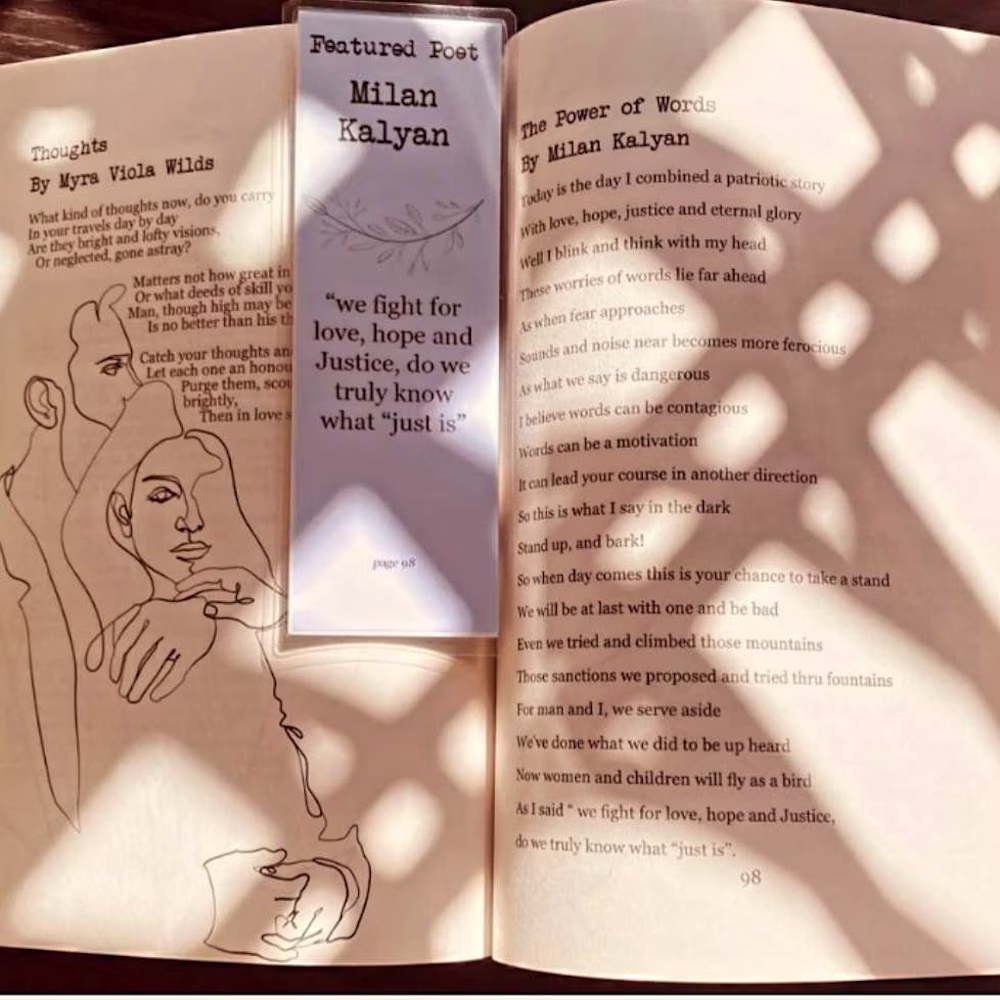 Thoughts
By Myra Viola Wilds
What kind of thoughts now, do you carry
In your travels day by day
Are they bright and lofty visions,
Or neglected, gone astray?
Matters not how great in
Or what deeds of skill yo
Man, though high may be
Is no better than his th
Catch your thoughts an
Let each one an honou
Purge them, scou
brightly,
Then in love s
Featured Poet
Milan
Kalyan
“we fight for
love, hope and
Justice, do we
truly know
what “just is”
page 98
The Power of Words
By Milan Kalyan
Today is the day I combined a patriotic story
With love, hope, justice and eternal glory
Well I blink and think with my head
These worries of words lie far ahead
As when fear approaches
Sounds and noise near becomes more ferocious
As what we say is dangerous
I believe words can be contagious
Words can be a motivation
It can lead your course in another direction
So this is what I say in the dark
Stand up, and bark!
So when day comes this is your chance to take a stand
We will be at last with one and be bad
Even we tried and climbed those mountains
Those sanctions we proposed and tried thru fountains
For man and I, we serve aside
We've done what we did to be up heard
Now women and children will fly as a bird
As I said “ we fight for love, hope and Justice,
do we truly know what “just is”.
98